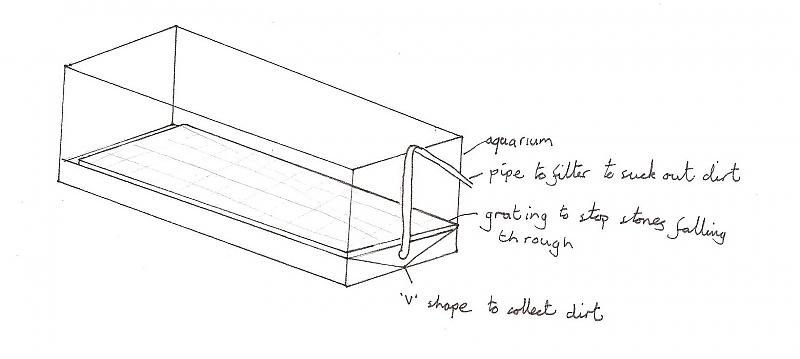 aquarium
pipe to filter to suck out dirt
grating to stop stones falling
through
'V' shape to collect dirt